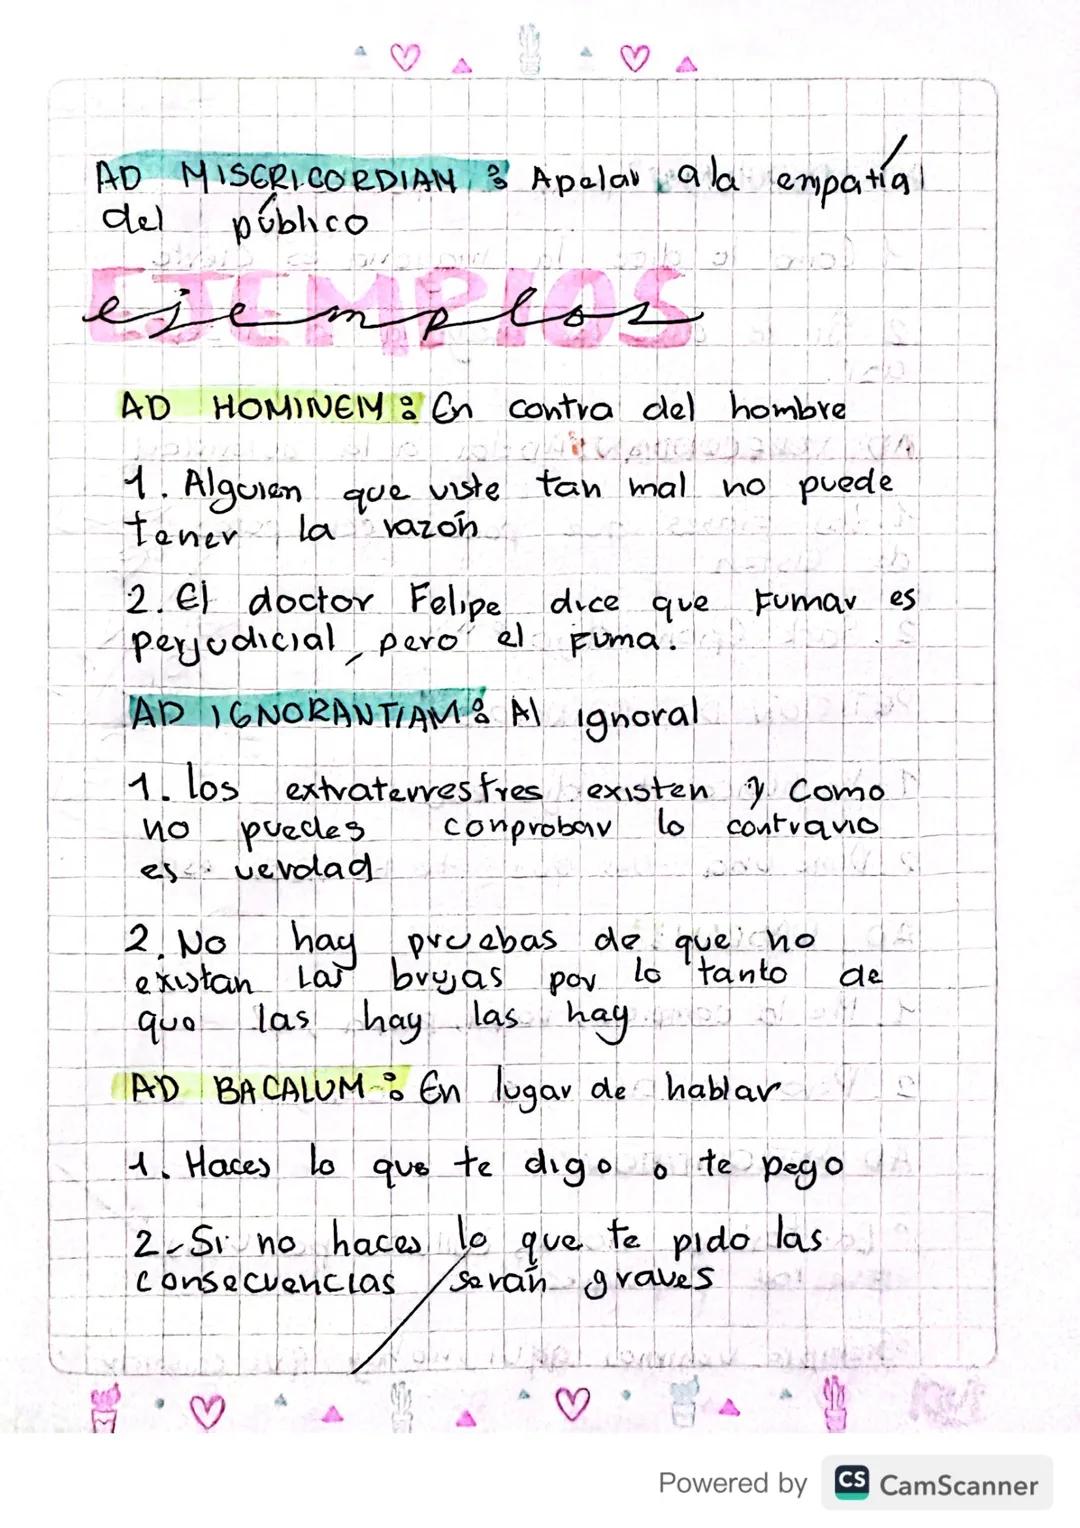 AD MISERICORDIAM : Apelar a la empatía
del público
EJEMPlOS
ejemplos
AD HOMINEM : En contra del hombre
1. Alguien que viste tan mal no puede
tener la razón
2. El doctor Felipe dice que Fumar es
perjudicial, pero el Fuma.
AD IGNORANTIAM : Al ignoral
1. los extraterrestres existen y Como
no puedes conprobar lo contrario
es verdad
2. No hay pruebas de que no
existan Las brujas por lo tanto de
que las hay las hay
AD BACALUM : En lugar de hablar
1. Haces lo que te digo o te pego
2- Si no haces lo que te pido las
consecuencias serán graves
Powered by CS CamScanner